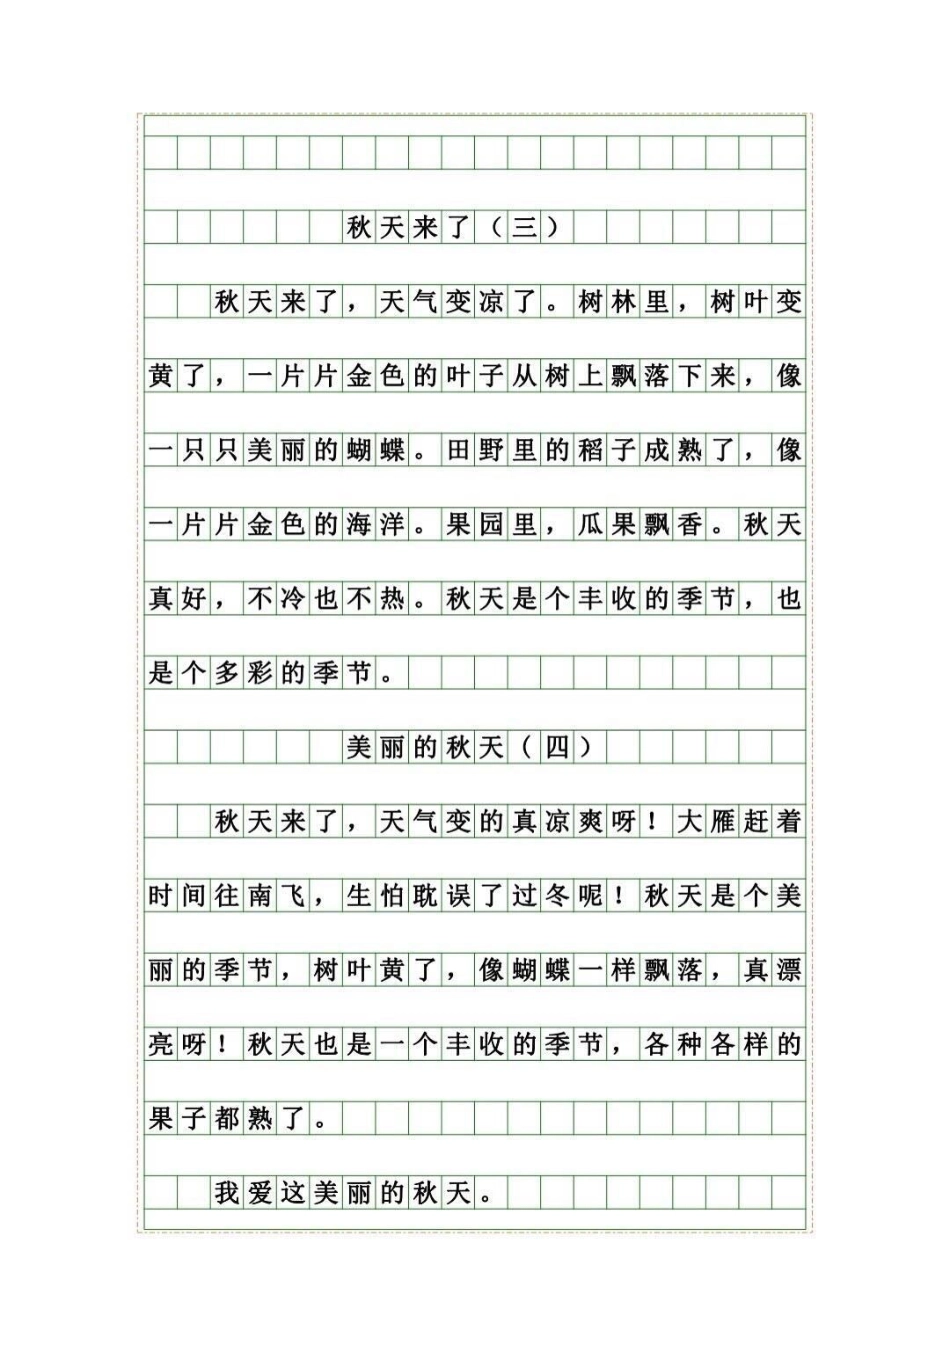 秋天来了（三）
秋天来了，天气变凉了。树林里，树叶变
黄了，一片片金色的叶子从树上飘落下来，像
一只只美丽的蝴蝶。田野里的稻子成熟了，像
一片片金色的海洋。果园里，瓜果飘香。秋天
真好，不冷也不热。秋天是个丰收的季节，也
是个多彩的季节。
美丽的秋天（四）
秋天来了，天气变的真凉爽呀！大雁赶着
时间往南飞，生怕耽误了过冬呢！秋天是个美
丽的季节，树叶黄了，像蝴蝶一样飘落，真漂
亮呀！秋天也是一个丰收的季节，各种各样的
果子都熟了。
我爱这美丽的秋天。